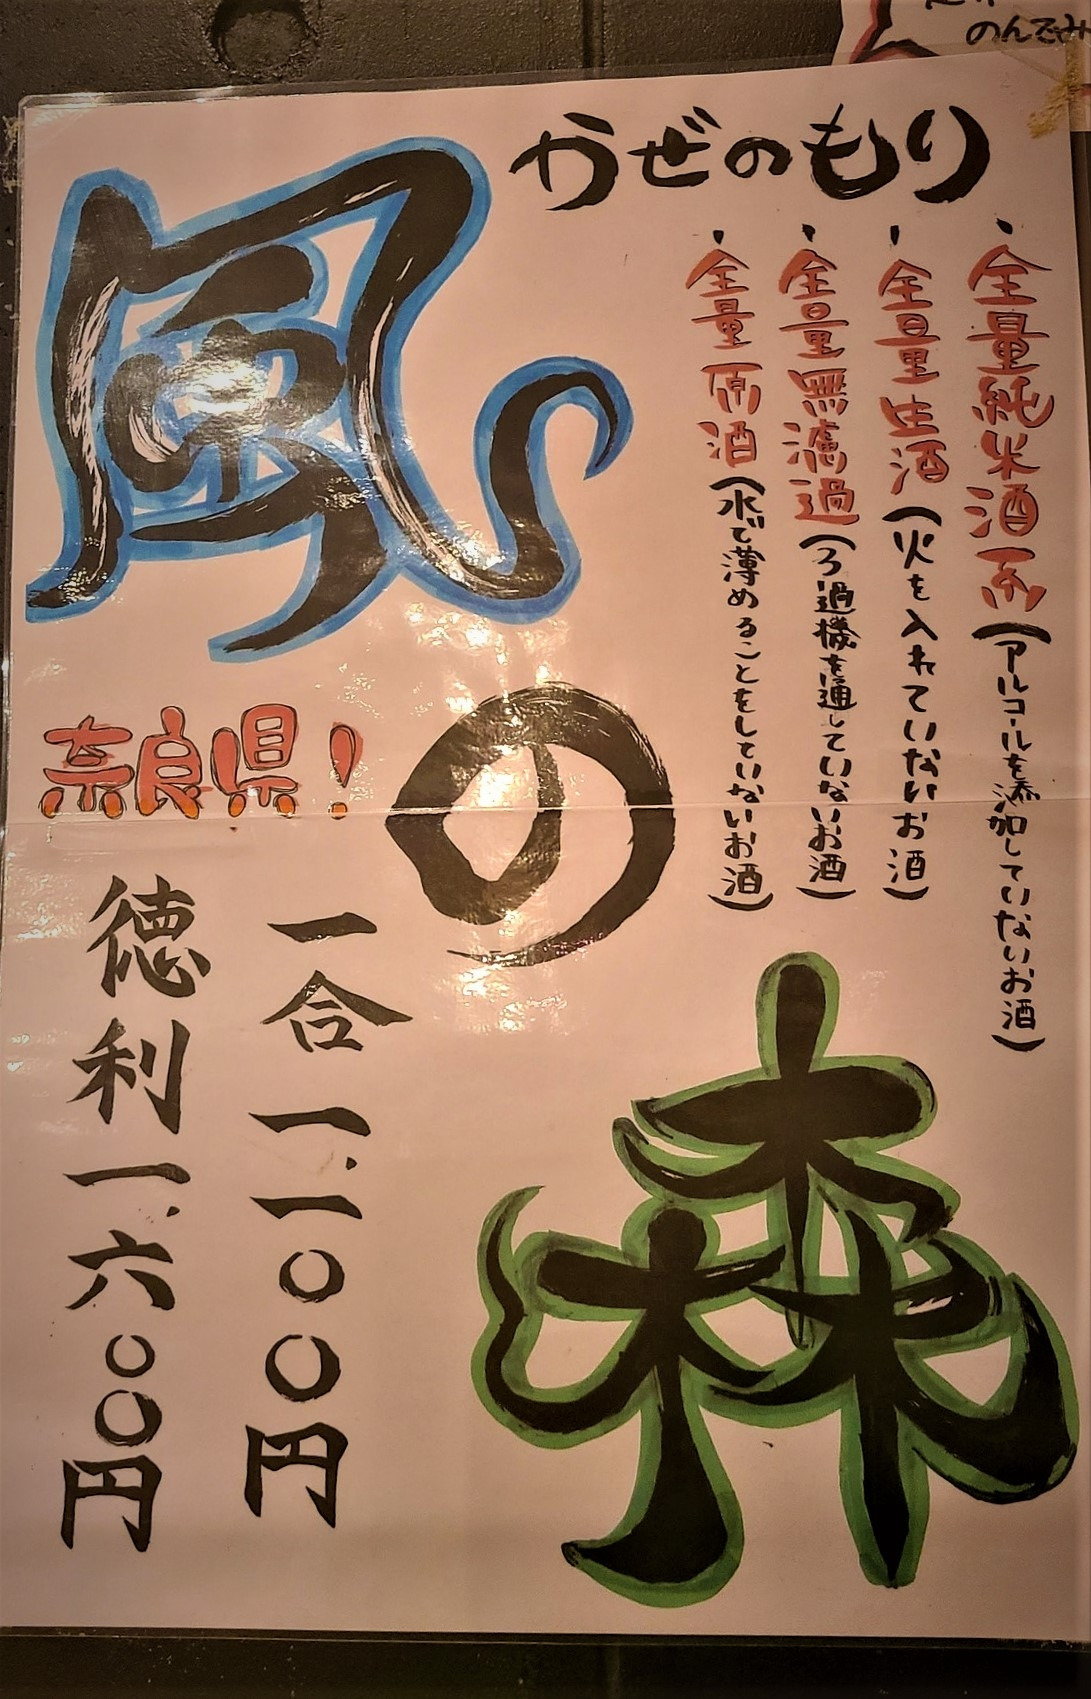 のんでみ
かぜのもり
・全量純米酒系(アルコールを添加していないお酒)
・全量生酒(火を入れていないお酒)
・全量無濾過(ろ過機を通していないお酒)
・全量原酒(水で薄めることをしていないお酒)
風の森
奈良県!
一合一.一〇〇円
徳利一.六〇〇円